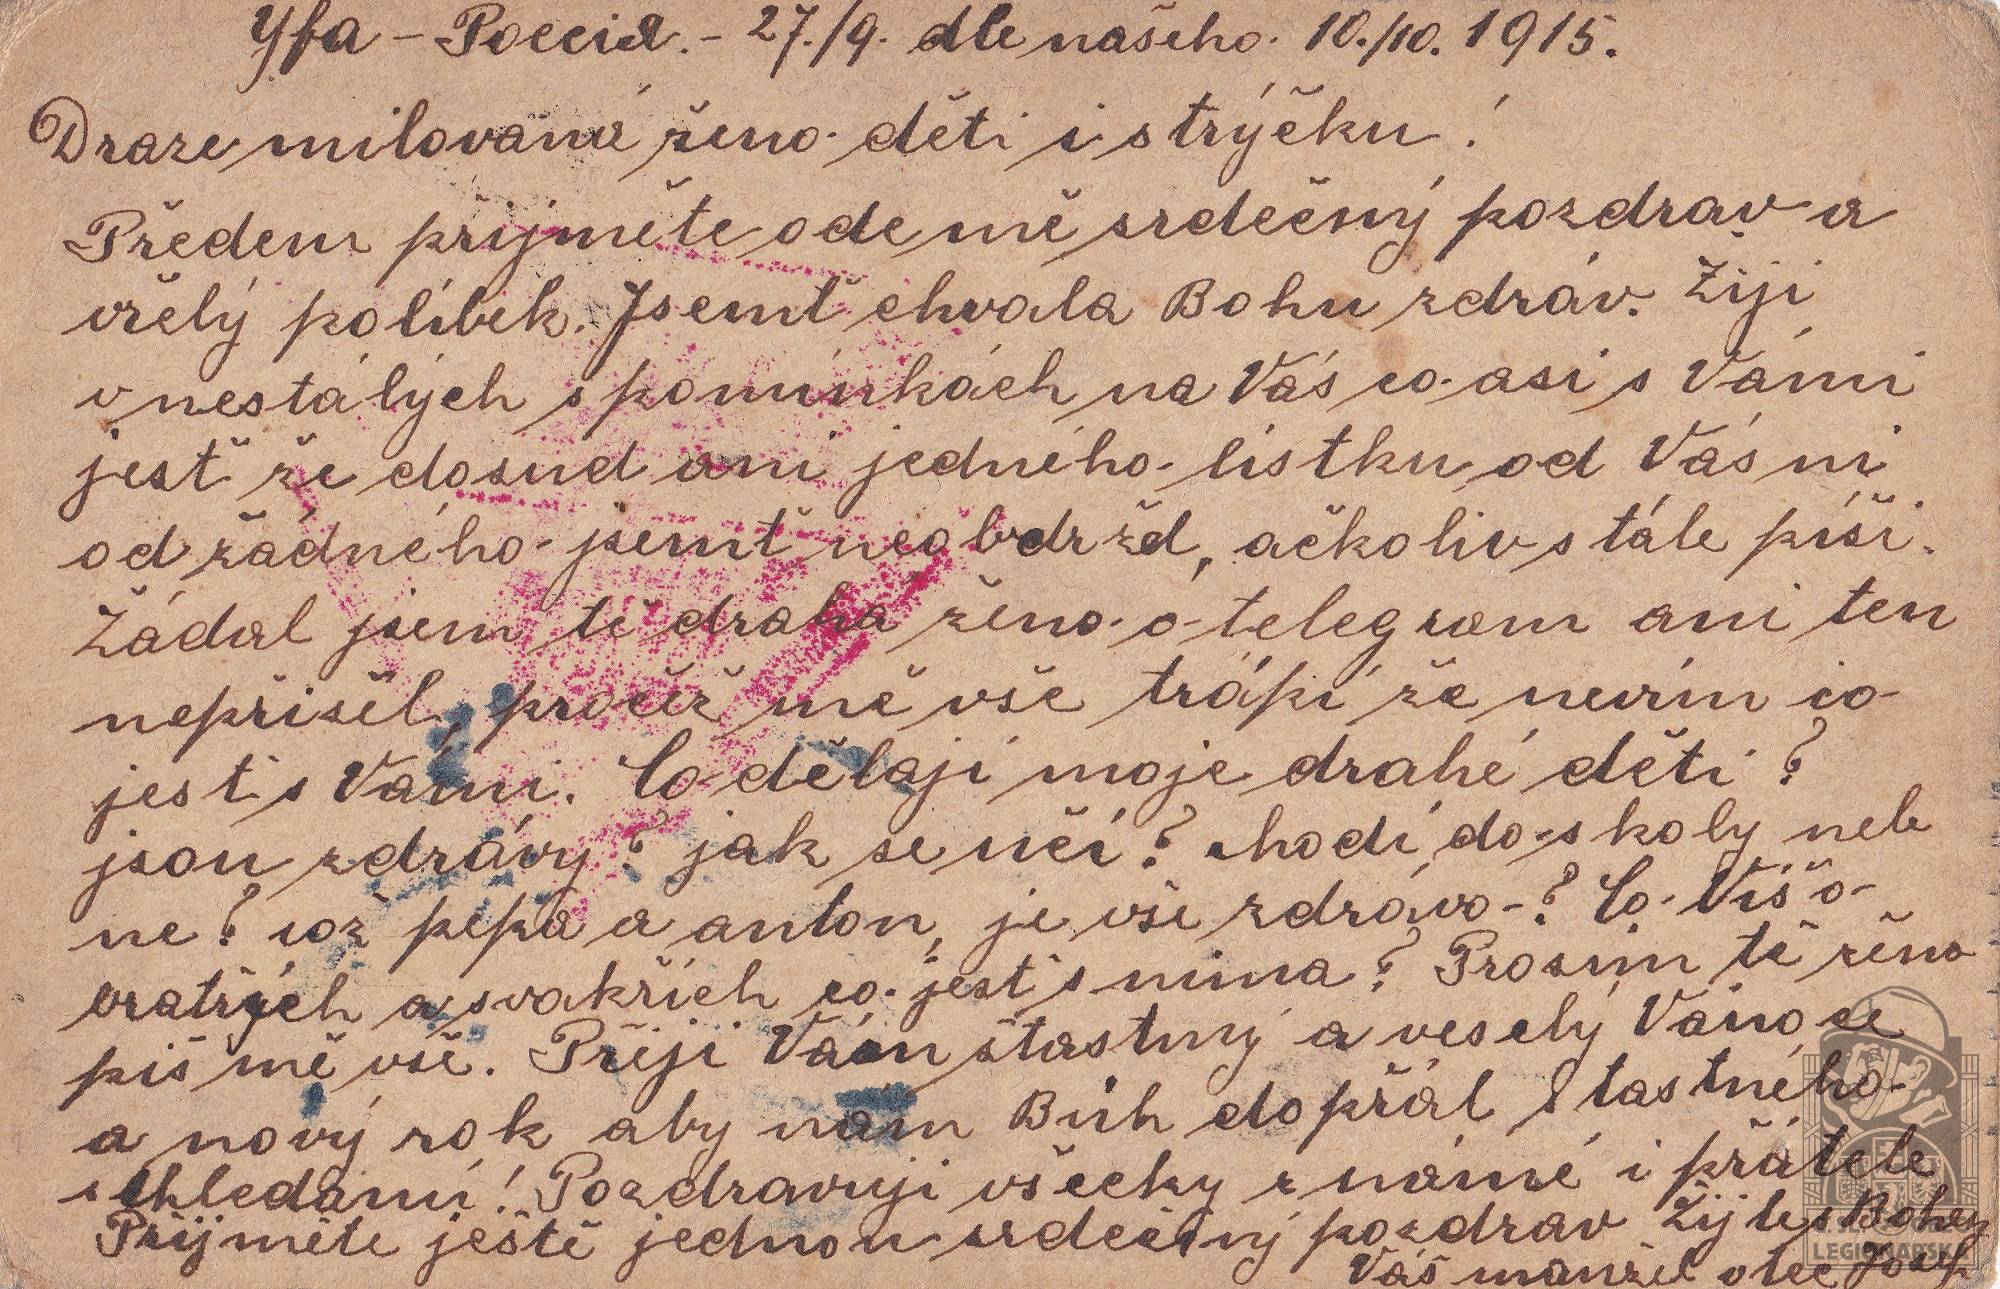 Уfa – Россія. – 27./9. dle našeho. 10./10. 1915.
Draze milovaná ženo děti i strýčku!
Předem přijměte ode mě srdečný pozdrav a
vřelý políbek. Jsemť chvala Bohu zdráv. Žiji
v nestálých spomínkách na Vás co asi s Vámi
jesť že dosud ani jedného lístku od Vás ni
od žádného jsemť neobdržel, ačkoliv stále píši.
Žádal jsem tě drahá ženo o telegram ani ten
nepřišel, pročež mě vše trápí že nevím co
jesti s Vámi. Co dělají moje drahé děti?
jsou zdrávy? jak se učí? chodí do skoly neb
ne? což pepa a anton, je vše zdrávo-? Co Víš o-
bratřích a svakřích co jesť s nima? Prosím tě ženo
piš mě vše. Přeji Vám šťastný a veselý Vánoce
a nový rok aby nám Bůh dopřál štastného
schledání! Pozdravuji všecky známé i přátele
Přijměte ještě jednou srdečný pozdrav Žijte s Bohem
Váš manžel otec Josef
LEGIONÁŘSKÁ